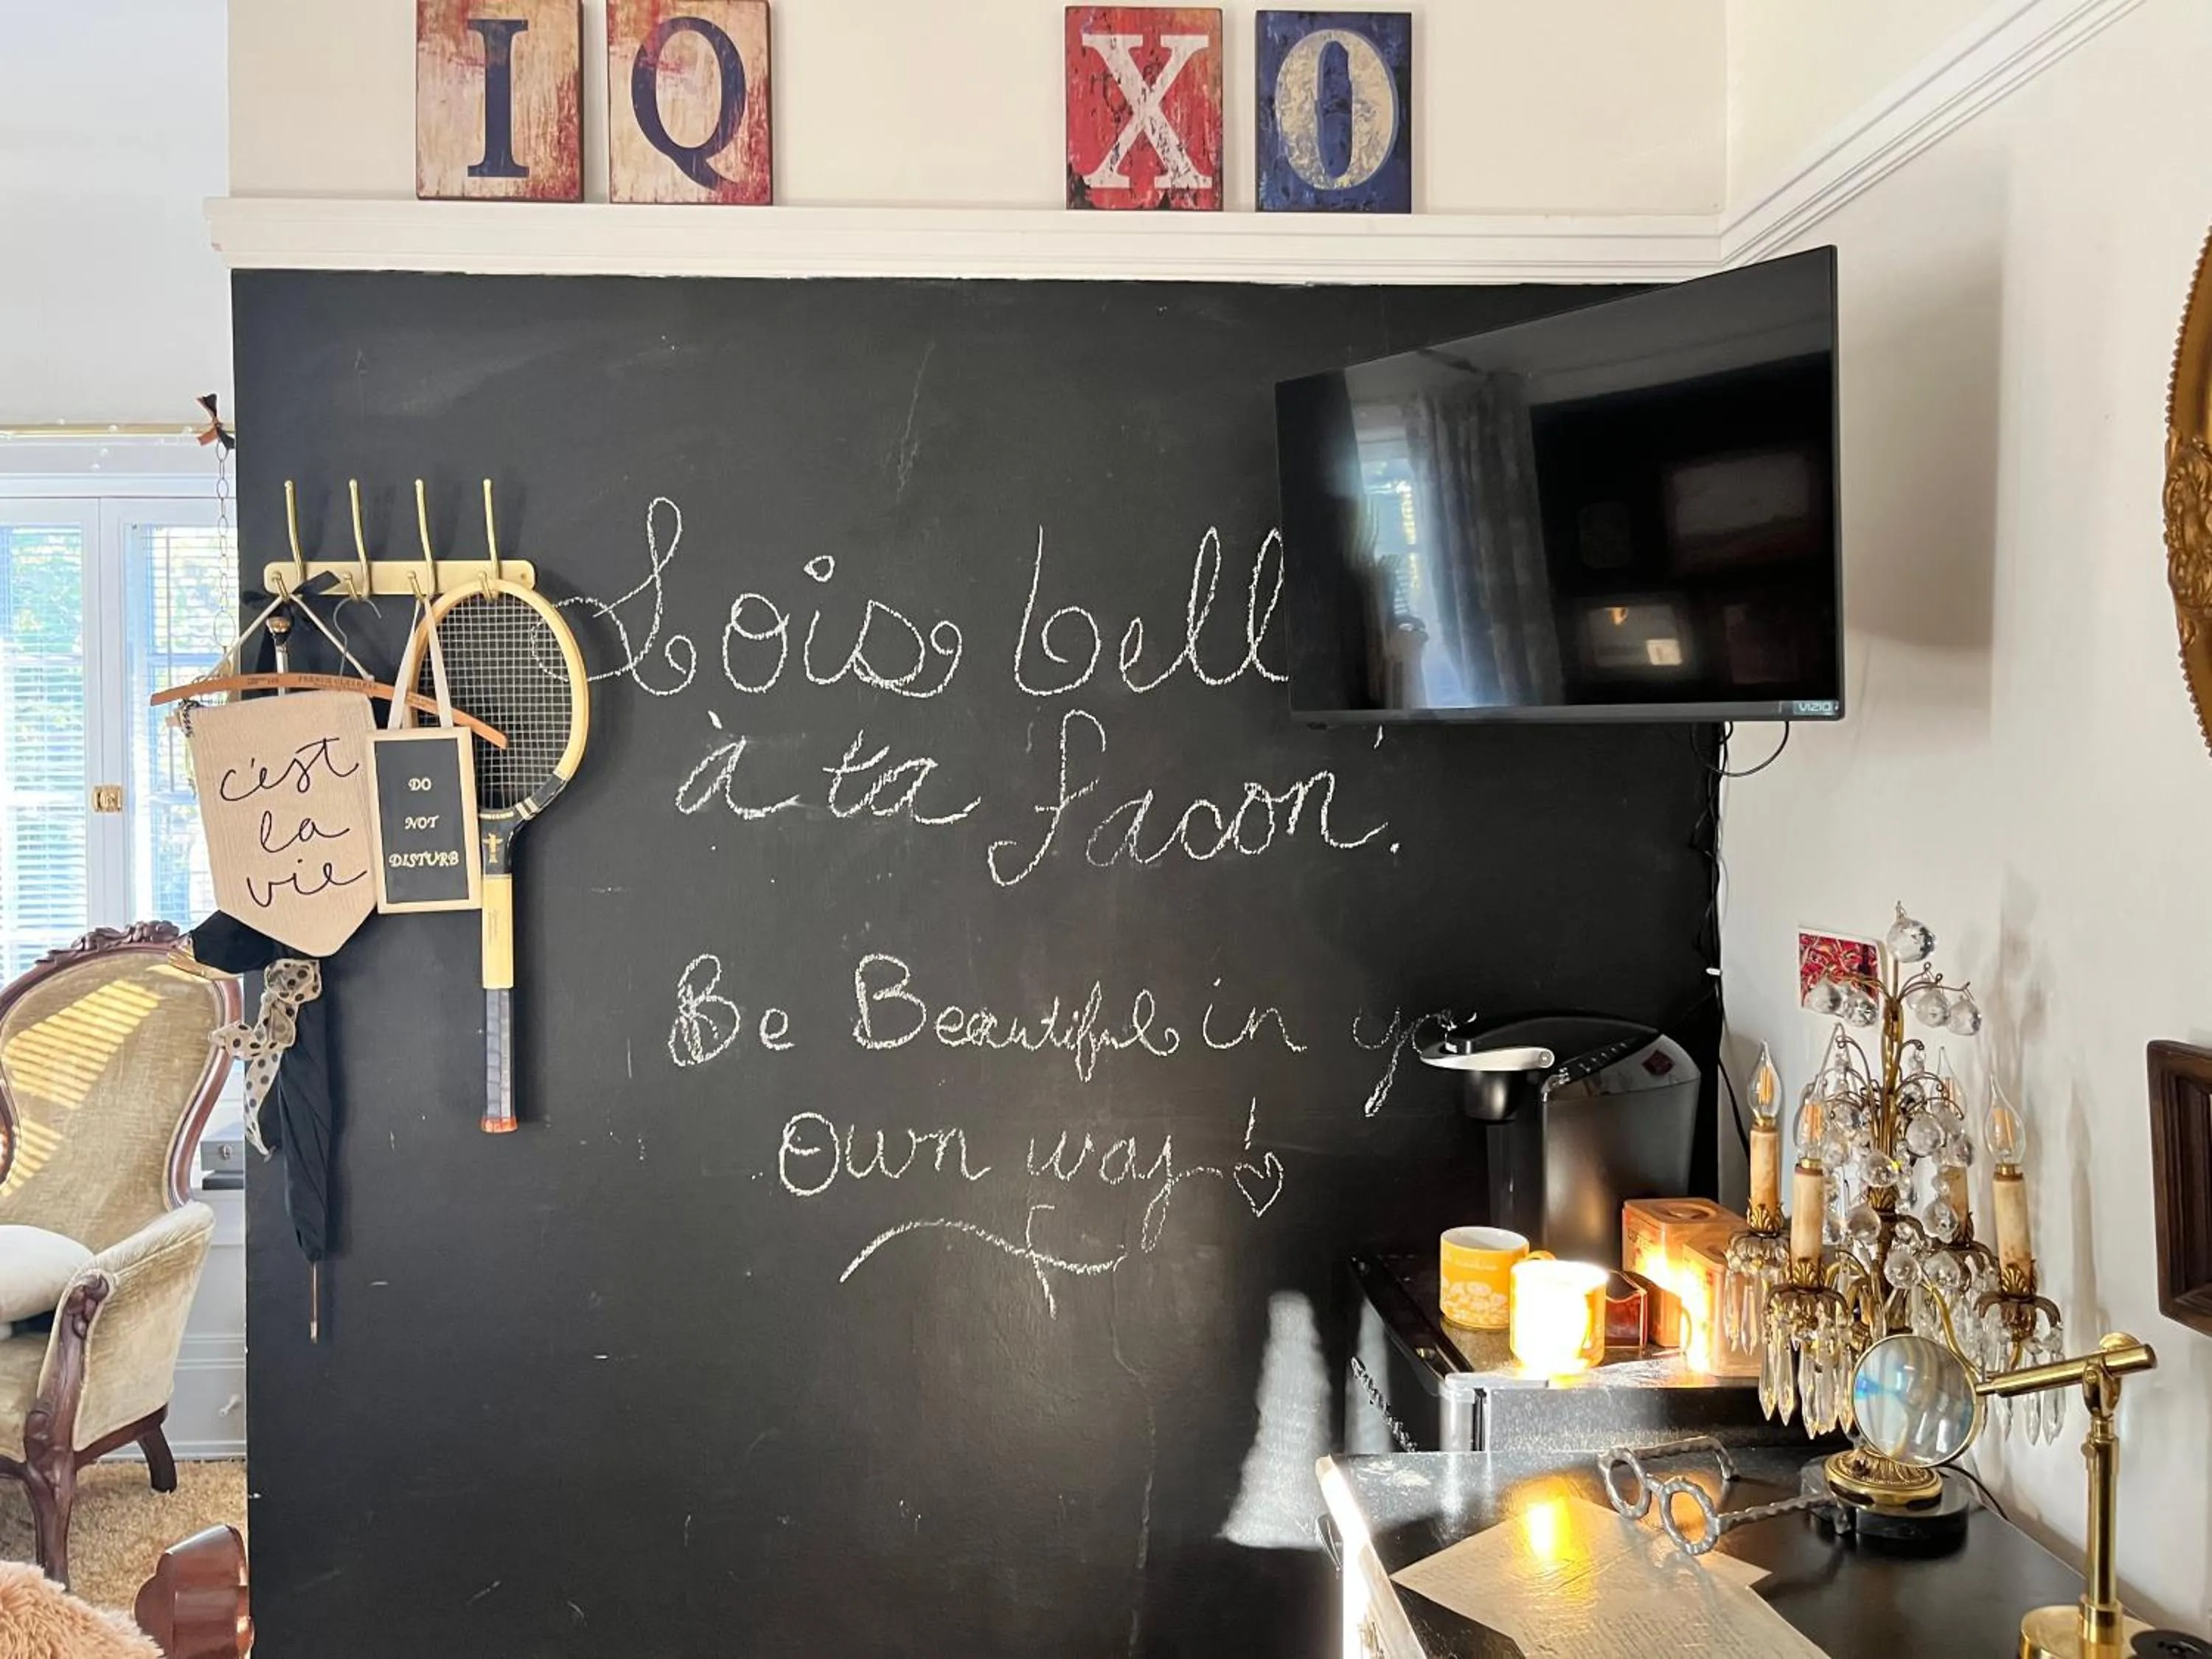 I Q X O
Sois bell
à ta facon.
Be Beautiful in yo
own way!
c'est
la
vie
DO
NOT
DISTURB
VIZIO